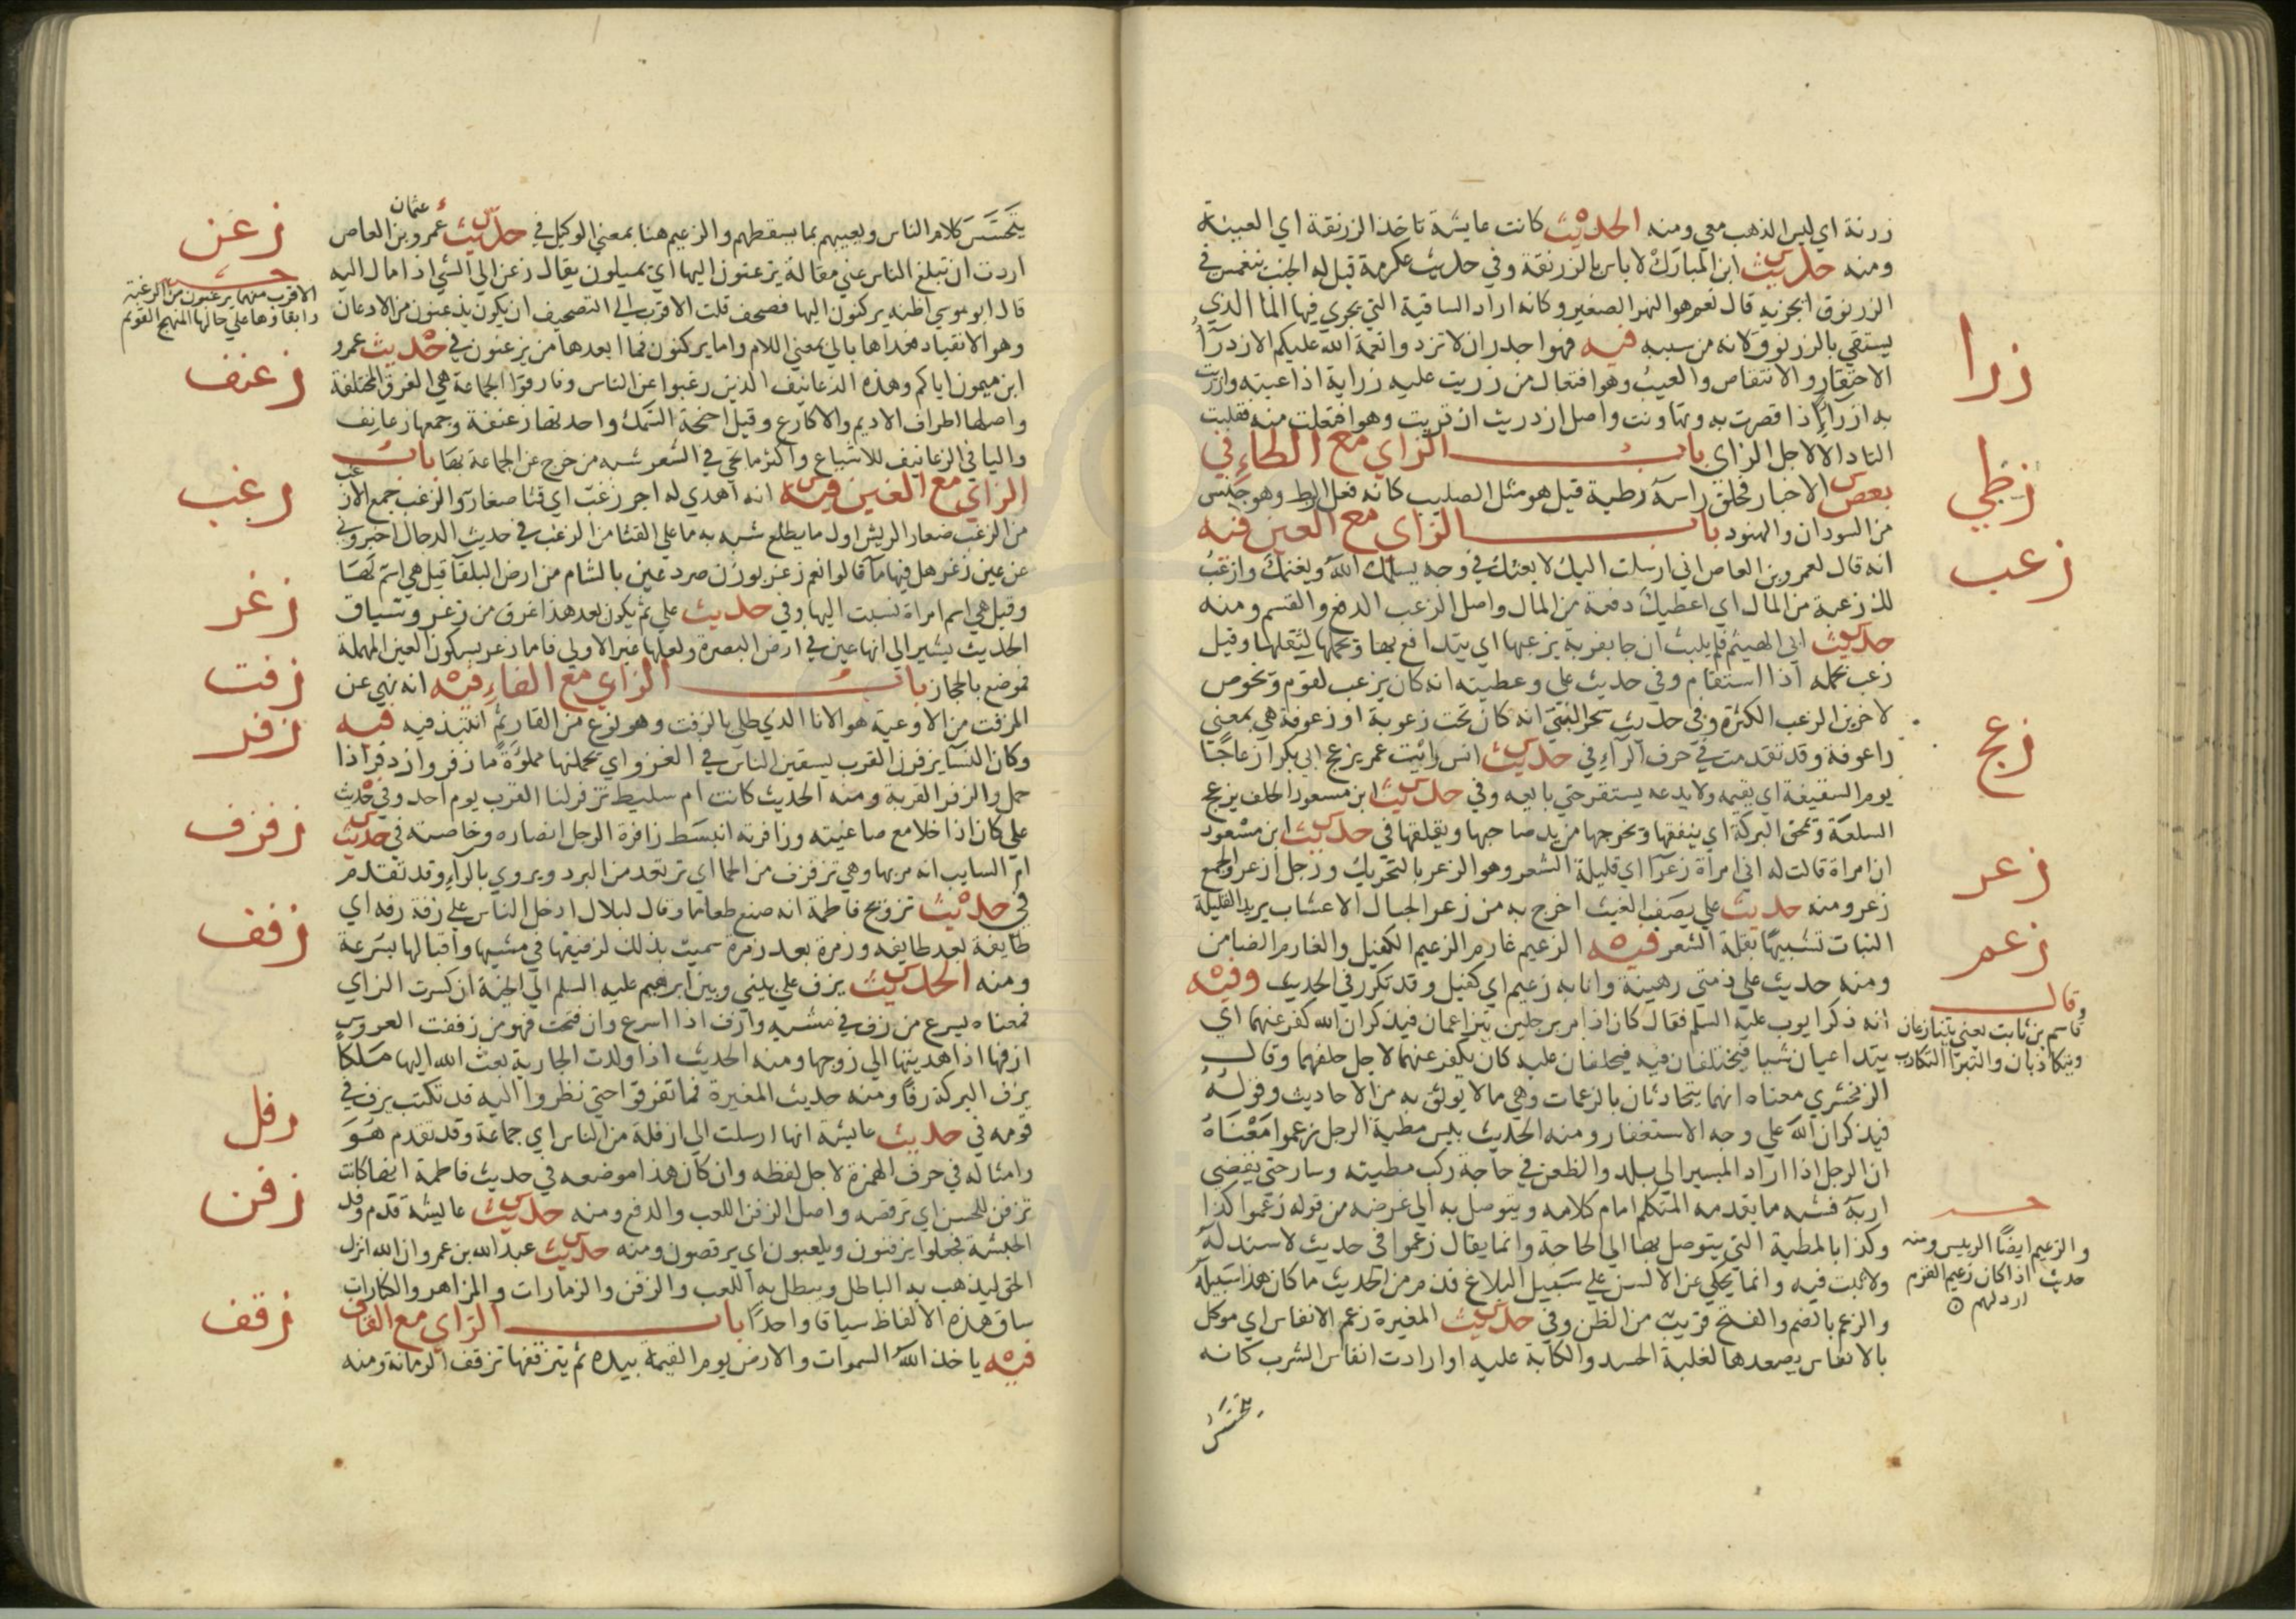 زرنة اي ليس الذهب معي ومنه الحديث كانت عايشة تاخذ الزرنقة اي العينة
ومنه حديث ابن المبارك لا باس بالزرنقة وفي حديث عكرمة قيل له الجنب ينغمس في
الزرنوق ايجزيه قال نعم هو النهر الصغير وكانه اراد الساقية التي يجري فيها الما الذي
يستقي بالزرنوق لانه من سببه فيه فهو اجدر ان لا تزدروا نعمة الله عليكم الازدرآ
زرا
الاحتقار والانتقاص والعيب وهو افتعال من زريت عليه زراية اذا عبته وازريت
به ازرآ اذا قصرت به وتهاونت واصل ازدريت ازتريت وهو افتعلت منه فقلبت
التا دالا لاجل الزاي باب الزاي مع الطاء في
زطي
بعض الاخبار فحلق راسه زطية قيل هو مثل الصليب كانه فعل الزط وهو جنس
من السودان والهنود باب الزاي مع العين فيه
زعب
انه قال لعمرو بن العاص اني ارسلت اليك لابعثك في وجه يسلمك الله ويغنمك وازعب
لك زعبة من المال اي اعطيك دفعة من المال واصل الزعب الدفع والقسم ومنه
حديث ابي الهيثم فلم يلبث ان جا بقربة يزعبها اي يتدافع بها ويحملها لثقلها وقيل
زعب بحمله اذا استقام وفي حديث علي وعطيته انه كان يزعب لقوم ويخوص
لاخرين الزعب الكثرة وفي حديث سحر النبي انه كان تحت زعوبة او زعوفة هي بمعني
راعوفة وقد تقدمت في حرف الرآء في حديث انس رايت عمر يزعج ابي بكر ازعاجا
زعج
يوم السقيفة اي يقيمه ولا يدعه يستقر حتي بايعه وفي حديث ابن مسعود الحلف يزعج
السلعة ويمحق البركة اي ينفقها ويخرجها من يد صاحبها ويقلقها في حديث ابن مسعود
زعر
ان امراة قالت له اني امراة زعرآ اي قليلة الشعر وهو الزعر بالتحريك ورجل ازعر والجمع
زعر ومنه حديث علي يصف الغيث اخرج به من زعر الجبال الاعشاب يريد القليلة
النبات تشبيها بقلة الشعر فيه الزعيم غارم الزعيم الكفيل والغارم الضامن
زعم
ومنه حديث علي ذمتي رهينة وانا به زعيم اي كفيل وقد تكرر في الحديث وفيه
انه ذكر ايوب عليه السلم فقال كان اذا مر برجلين يتزاعمان فيذكران الله كفر عنهما اي
وقال
قاسم بن ثابت يعني يتنازعان
ويتكاذبان والتزاعم التكاذب
يتداعيان شيا فيختلفان فيه فيحلفان عليه كان يكفر عنهما لاجل حلفهما وقال
الزمخشري معناه انهما يتحادثان بالزعمات وهي ما لا يوثق به من الاحاديث وقوله
فيذكران الله علي وجه الاستغفار ومنه الحديث بيس مطية الرجل زعموا معناه
ان الرجل اذا اراد المسير الي بلد والظعن في حاجة ركب مطيته وسار حتي يقضي
اربه فشبه ما يقدمه المتكلم امام كلامه ويتوصل به الي غرضه من قوله زعموا كذا
وكذا بالمطية التي يتوصل بها الي الحاجة وانما يقال زعموا في حديث لا سند له
والزعيم ايضا الرييس ومنه
حديث اذا كان زعيم القوم
ارذلهم
ولا ثبت فيه وانما يحكي عن الالسن علي سبيل البلاغ فذم من الحديث ما كان هذا سبيله
والزعم بالضم والفتح قريب من الظن وفي حديث المغيرة زعيم الانفاس اي موكل
بالانفاس يصعدها لغلبة الحسد والكابة عليه او ارادت انفاس الشرب كانه
يتحسس
يتحسس كلام الناس ويعيبهم بما يسقطهم والزعيم هنا بمعني الوكيل في حديث عثمان عمرو بن العاص
زعن
اردت ان تبلغ الناس عني مقالة يزعنون اليها اي يميلون يقال زعن الي الشي اذا مال اليه
قال ابو موسي اظنه يركنون اليها فصحف قلت الاقرب الي التصحيف ان يكون يذعنون من الاذعان
الاقرب منهما يرغبون من الرغبة
وابقاوها علي حالها المنهج القويم
وهو الانقياد فعداها بالي بمعني اللام واما يركنون فما ابعدها من يزعنون في حديث عمرو
زعنف
ابن ميمون اياكم وهذه الزعانيف الذين رغبوا عن الناس وفارقوا الجماعة هي الفرق المختلفة
واصلها اطراف الاديم والاكارع وقيل اجنحة السمك واحدتها زعنفة وجمعها زعانف
واليا في الزعانيف للاشباع واكثر ما يجي في الشعر شبه من خرج عن الجماعة بها باب
الزاي مع الغين فيه انه اهدي له اجر زغب اي قثا صغار والزغب جمع الازغب
زغب
من الزغب صغار الريش اول ما يطلع شبه به ما علي القثا من الزغب في حديث الدجال اخبروني
عن عين زغر هل فيها مآ قالوا نعم زغر بوزن صرد عين بالشام من ارض البلقآ قيل هي اسم لها
زغر
وقيل هي اسم امراة نسبت اليها وفي حديث علي ثم يكون بعد هذا غرق من زغر وسياق
الحديث يشير الي انها عين في ارض البصرة ولعلها غير الاولي فاما زعر بسكون العين المهملة
فموضع بالحجاز باب الزاي مع الفاء فيه انه نهي عن
زفت
المزفت من الاوعية هو الانا الذي طلي بالزفت وهو نوع من القار ثم انتبذ فيه فيه
زفر
وكان النسا يزفرن القرب يسقين الناس في الغزو اي يحملنها مملوءة ما زفر وازدفر اذا
حمل والزفر القربة ومنه الحديث كانت ام سليط تزفر لنا القرب يوم احد وفي حديث
علي كان اذا خلا مع صاغيته وزافرته انبسط زافرة الرجل انصاره وخاصته في حديث
زفزف
ام السايب انه مر بها وهي تزفزف من الحما اي ترتعد من البرد ويروي بالرآء وقد تقدم
في حديث تزويج فاطمة انه صنع طعاما وقال لبلال ادخل الناس علي زفة زفة اي
زفف
طايفة بعد طايفة وزمرة بعد زمرة سميت بذلك لزفيفها في مشيها واقبالها بسرعة
ومنه الحديث يزف علي بيني وبين ابرهيم عليه السلم الي الجنة ان كسرت الزاي
فمعناه يسرع من زف في مشيه وازف اذا اسرع وان فتحت فهو من زففت العروس
ازفها اذا اهديتها الي زوجها ومنه الحديث اذا ولدت الجارية بعث الله اليها ملكا
يزف البركة زفا ومنه حديث المغيرة فما تفرقوا حتي نظروا اليه قد تكتب يزف في
قومه في حديث عايشة انها ارسلت الي ازفلة من الناس اي جماعة وقد تقدم هو
زفل
وامثاله في حرف الهمزة لاجل لفظه وان كان هذا موضعه في حديث فاطمة انها كانت
زفن
تزفن للحسن اي ترقصه واصل الزفن اللعب والدفع ومنه حديث عايشة قدم وفد
الحبشة فجعلوا يزفنون ويلعبون اي يرقصون ومنه حديث عبد الله بن عمرو ان الله انزل
الحق ليذهب به الباطل ويبطل به اللعب والزفن والزمارات والمزاهر والكنارات
ساق هذه الالفاظ سياقا واحدا باب الزاي مع القاف
زقف
فيه ياخذ الله السموات والارض يوم القيمة بيده ثم يتزقفها تزقف الرمانة ومنه